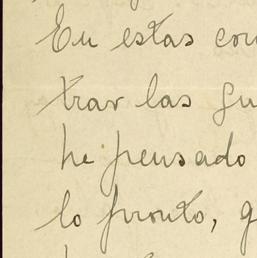 En estas con
trar las gu
he pensado
lo pronto, q